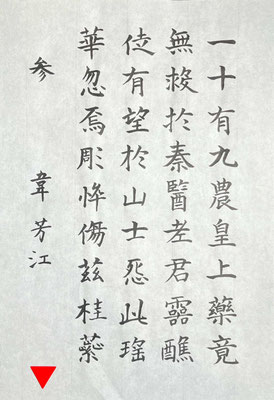 一十有九農皇上藥竟
無救於秦醫老君靈醮
徒有望於山士怨此瑤
華忽焉彫悴傷茲桂蘂
參 韋芳江